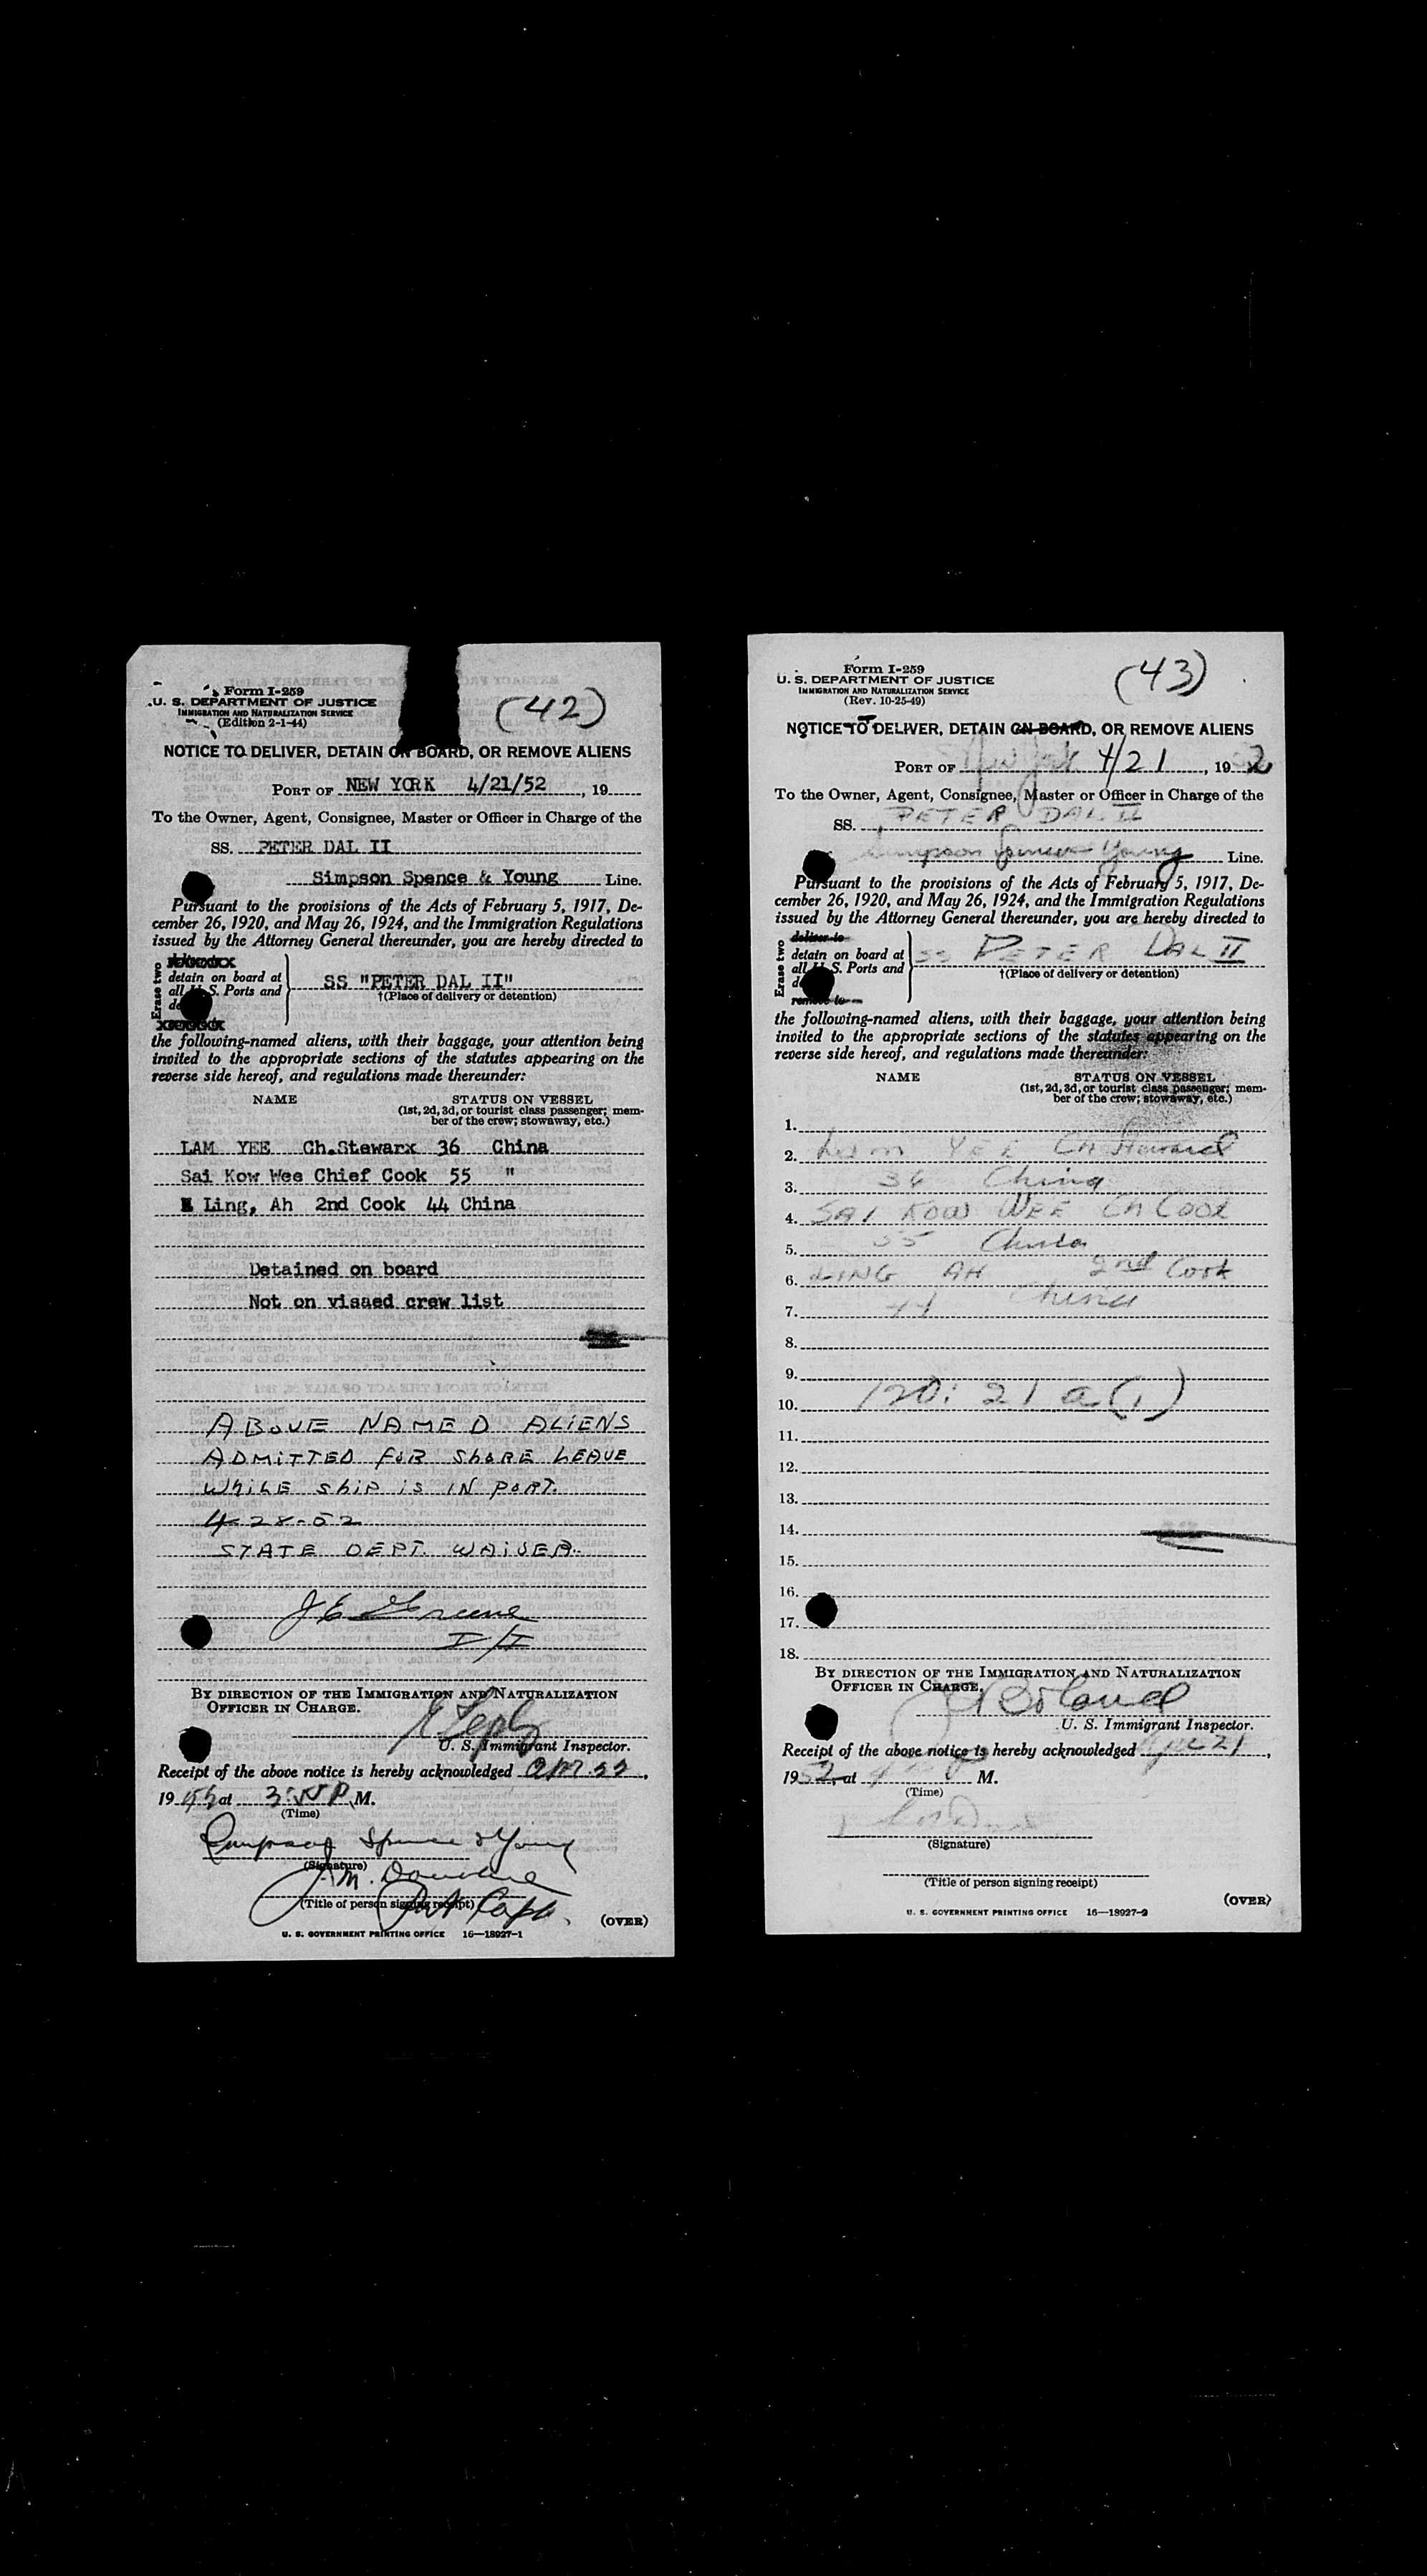 Form I-259
U. S. DEPARTMENT OF JUSTICE
IMMIGRATION AND NATURALIZATION SERVICE
(Edition 2-1-44)
(42)
NOTICE TO DELIVER, DETAIN ON BOARD, OR REMOVE ALIENS
PORT OF NEW YORK 4/21/52, 19
To the Owner, Agent, Consignee, Master or Officer in Charge of the
SS. PETER DAL II
Simpson Spence & Young Line.
Pursuant to the provisions of the Acts of February 5, 1917, De-
cember 26, 1920, and May 26, 1924, and the Immigration Regulations
issued by the Attorney General thereunder, you are hereby directed to
Erase two
detain on board at
all U. S. Ports and
SS "PETER DAL II"
†(Place of delivery or detention)
the following-named aliens, with their baggage, your attention being
invited to the appropriate sections of the statutes appearing on the
reverse side hereof, and regulations made thereunder:
NAME STATUS ON VESSEL
(1st, 2d, 3d, or tourist class passenger; mem-
ber of the crew; stowaway, etc.)
LAM YEE Ch.Stewarx 36 China
Sai Kow Wee Chief Cook 55 "
Ling, Ah 2nd Cook 44 China
Detained on board
Not on visaed crew list
ABOVE NAMED ALIENS
ADMITTED FOR SHORE LEAVE
WHILE SHIP IS IN PORT.
4-28-52
STATE DEPT. WAIVER.
J E Greene
I/I
BY DIRECTION OF THE IMMIGRATION AND NATURALIZATION
OFFICER IN CHARGE.
U. S. Immigrant Inspector.
Receipt of the above notice is hereby acknowledged
19 52 at 3 P.M.
(Time)
Simpson Spence & Young
(Signature)
(Title of person signing receipt)
(OVER)
U. S. GOVERNMENT PRINTING OFFICE 16—18927-1
Form I-259
U. S. DEPARTMENT OF JUSTICE
IMMIGRATION AND NATURALIZATION SERVICE
(Rev. 10-25-49)
(43)
NOTICE TO DELIVER, DETAIN ON BOARD, OR REMOVE ALIENS
PORT OF New York 4/21, 1952
To the Owner, Agent, Consignee, Master or Officer in Charge of the
SS. PETER DAL II
Simpson Spence Young Line.
Pursuant to the provisions of the Acts of February 5, 1917, De-
cember 26, 1920, and May 26, 1924, and the Immigration Regulations
issued by the Attorney General thereunder, you are hereby directed to
Erase two
deliver to
detain on board at
all U. S. Ports and
remove to
SS PETER DAL II
†(Place of delivery or detention)
the following-named aliens, with their baggage, your attention being
invited to the appropriate sections of the statutes appearing on the
reverse side hereof, and regulations made thereunder:
NAME STATUS ON VESSEL
(1st, 2d, 3d, or tourist class passenger; mem-
ber of the crew; stowaway, etc.)
1.
2. Lam YEE Ch Steward
3. 36 China
4. SAI KOW WEE Ch Cook
5. 55 China
6. LING AH 2nd Cook
7. 44 China
8.
9.
10. 120: 21 a (1)
11.
12.
13.
14.
15.
16.
17.
18.
BY DIRECTION OF THE IMMIGRATION AND NATURALIZATION
OFFICER IN CHARGE.
U. S. Immigrant Inspector.
Receipt of the above notice is hereby acknowledged 21,
1952, at M.
(Time)
(Signature)
(Title of person signing receipt)
(OVER)
U. S. GOVERNMENT PRINTING OFFICE 16—18927-2